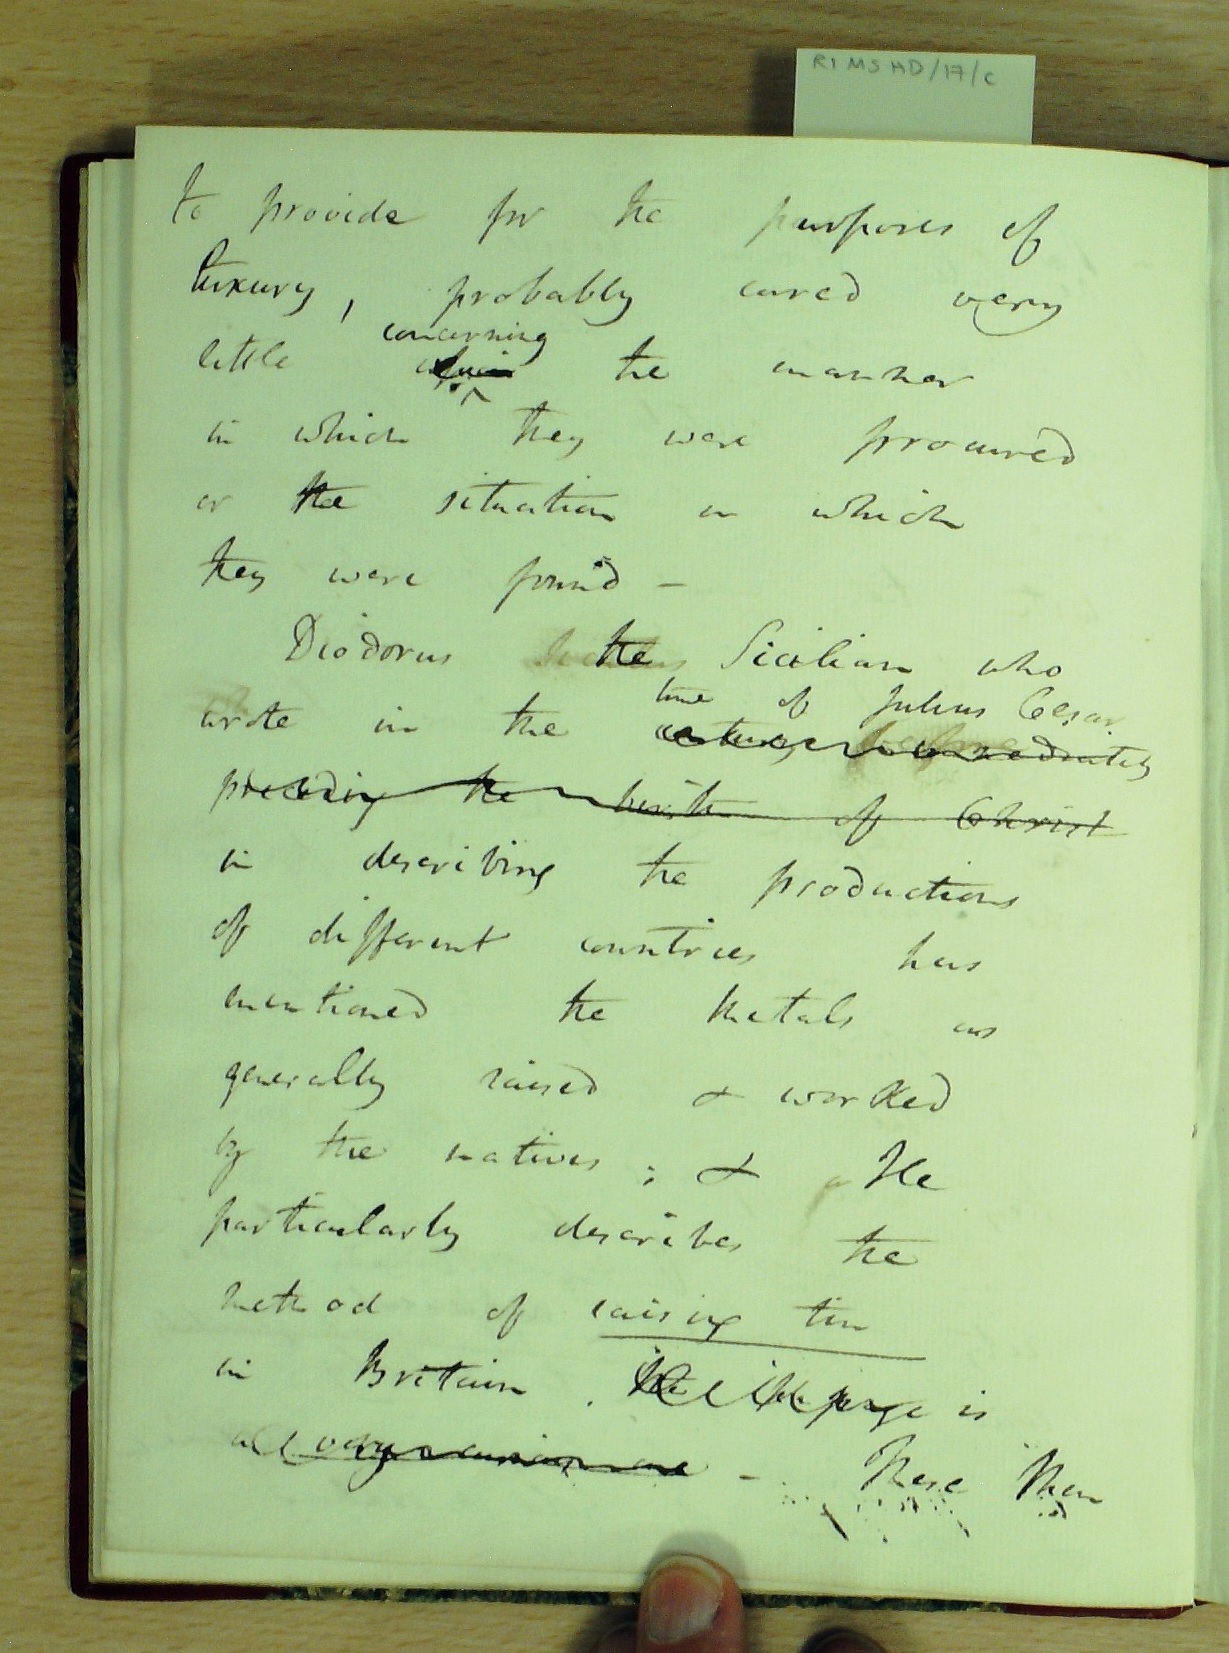 RI MS HD/17/C
to provide for the purposes of
luxury, probably cared very
concerning
little the manner
in which they were procured
or the situation in which
they were found –
Diodorus the Sicilian who
time of Julius Cesar
wrote in the century immediately
preceding the birth of Christ
in describing the productions
of different countries has
mentioned the Metals as
generally raised & worked
by the natives; & He
particularly describes the
method of raising tin
in Britain. is
a very curious one – These Men